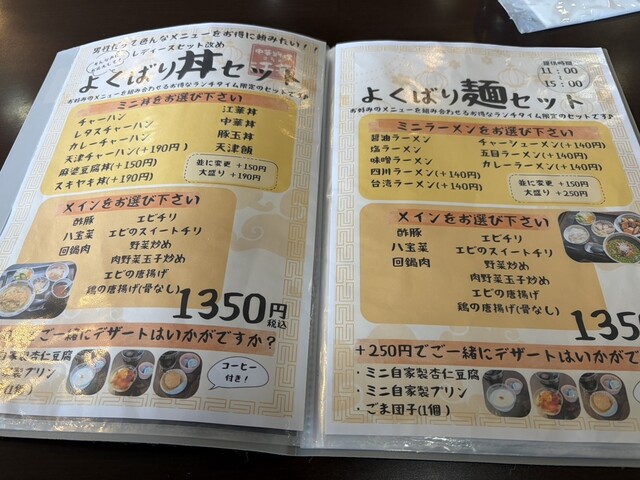 男性だって色んなメニューをお得に頼みたい！！
レディースセット改め
よくばり丼セット
お好みのメニューを組み合わせるお得なランチタイム限定のセットです
ミニ丼をお選び下さい
チャーハン 江華丼
レタスチャーハン 中華丼
カレーチャーハン 豚玉丼
天津チャーハン(+190円) 天津飯
麻婆豆腐丼(+150円)
スキヤキ丼(+190円)
並に変更 +150円
大盛り +190円
メインをお選び下さい
酢豚 エビチリ
八宝菜 エビのスイートチリ
回鍋肉 野菜炒め
肉野菜玉子炒め
エビの唐揚げ
鶏の唐揚げ(骨なし)
1350円
税込
ご一緒にデザートはいかがですか？
自家製杏仁豆腐
家製プリン
コーヒー
付き！
提供時間
11：00
～
15：00
よくばり麺セット
お好みのメニューを組み合わせるお得なランチタイム限定のセットです
ミニラーメンをお選び下さい
醤油ラーメン チャーシューメン(+140円)
塩ラーメン 五目ラーメン(+140円)
味噌ラーメン カレーラーメン(+140円)
四川ラーメン(+140円)
台湾ラーメン(+140円)
並に変更 +150円
大盛り +250円
メインをお選び下さい
酢豚 エビチリ
八宝菜 エビのスイートチリ
回鍋肉 野菜炒め
肉野菜玉子炒め
エビの唐揚げ
鶏の唐揚げ(骨なし)
1350
+250円でご一緒にデザートはいかがで
・ミニ自家製杏仁豆腐
・ミニ自家製プリン
・ごま団子(1個)